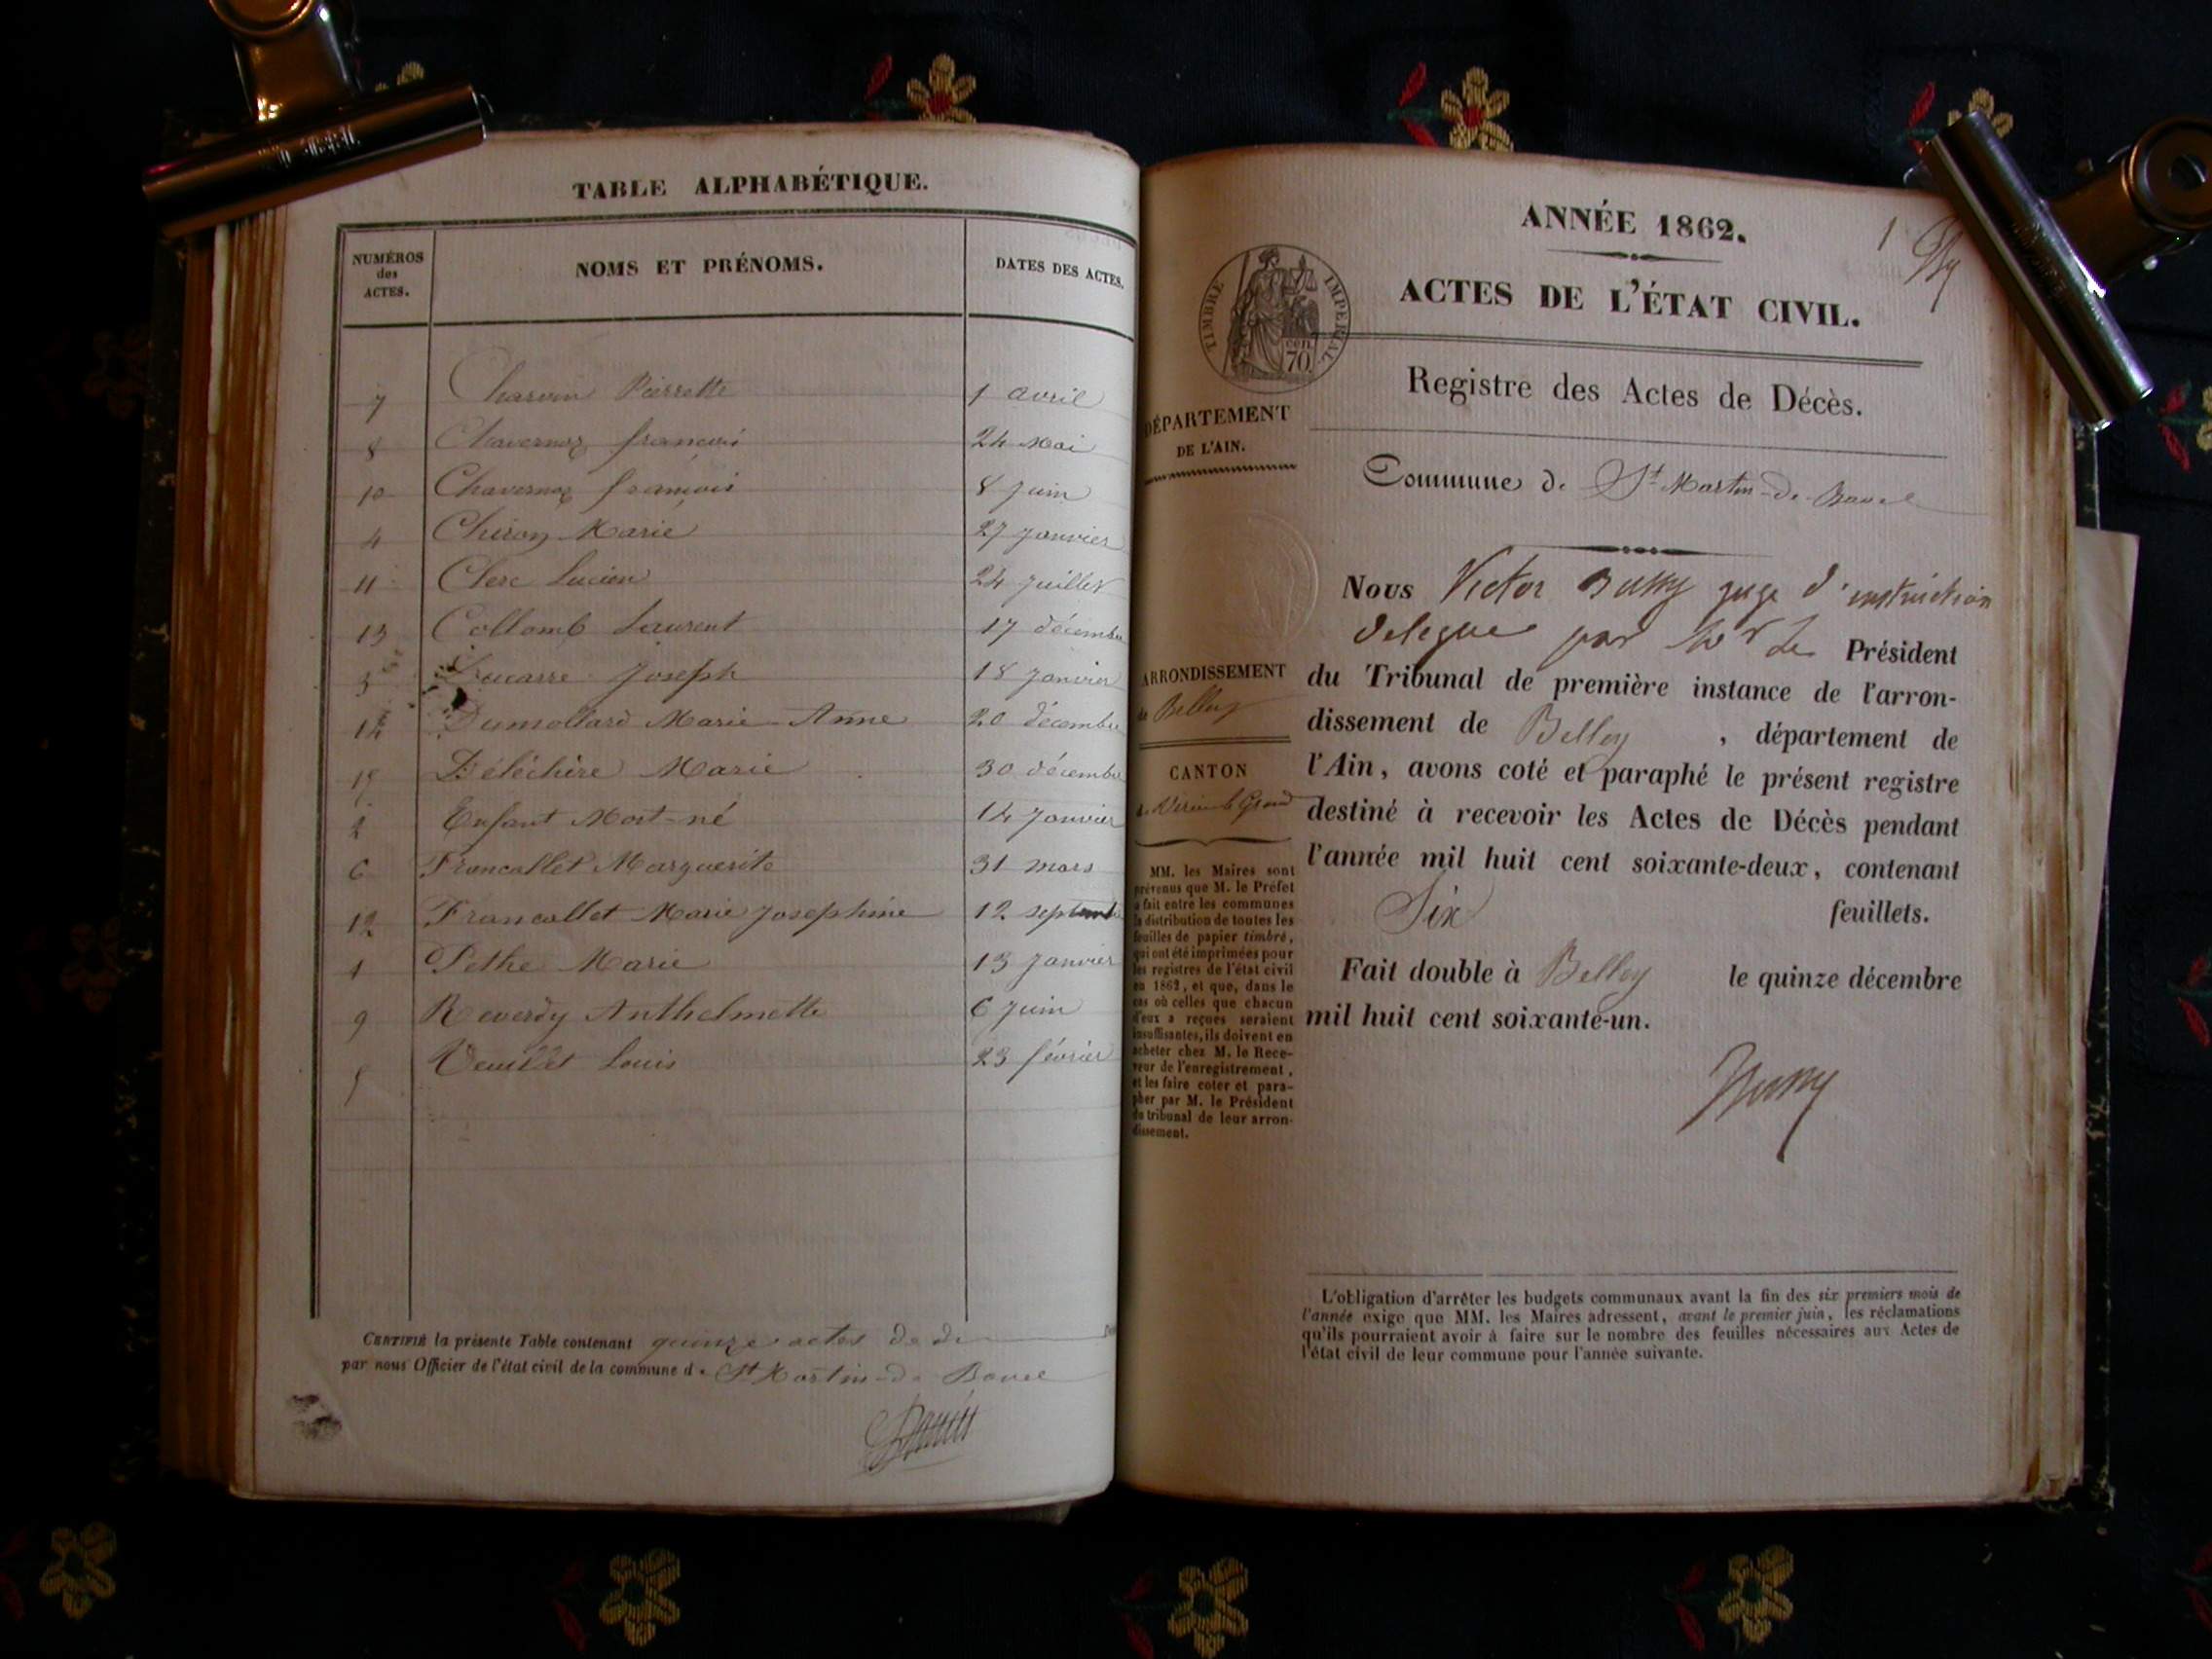 TABLE ALPHABÉTIQUE.
NUMÉROS des ACTES. NOMS ET PRÉNOMS. DATES DES ACTES.
7 Charvin Pierrette 1 avril
8 Chavernoz françois 24 Mai
10 Chavernoz françois 8 Juin
4 Chiron Marie 27 Janvier
11 Clerc Lucien 24 Juillet
13 Collomb Laurent 17 décembre
3 Ducarre Joseph 18 Janvier
14 Dumollard Marie-Anne 20 décembre
15 Déléchère Marie 30 décembre
2 Enfant Mort-né 14 Janvier
6 Francallet Marguerite 31 mars
12 Francallet Marie Josephine 12 septembre
1 Pethe Marie 13 Janvier
9 Reverdy Anthelmette 6 Juin
5 Veuillet Louis 23 février
CERTIFIÉ la présente Table contenant quinze actes de
par nous Officier de l'état civil de la commune de St Martin-de Bavel
1
ANNÉE 1862.
ACTES DE L'ÉTAT CIVIL.
TIMBRE IMPÉRIAL
cen. 70.
Registre des Actes de Décès.
DÉPARTEMENT
DE L'AIN.
Commune de St Martin-de-Bavel
ARRONDISSEMENT
de Belley
CANTON
MM. les Maires sont
prévenus que M. le Préfet
a fait entre les communes
la distribution de toutes les
feuilles de papier timbré,
qui ont été imprimées pour
les registres de l'état civil
en 1862, et que, dans le
cas où celles que chacun
d'eux a reçues seraient
insuffisantes, ils doivent en
acheter chez M. le Rece-
veur de l'enregistrement,
et les faire coter et para-
pher par M. le Président
du tribunal de leur arron-
dissement.
Nous Victor Bussy juge d'instruction
delegue par Mr Le Président
du Tribunal de première instance de l'arron-
dissement de Belley , département de
l'Ain, avons coté et paraphé le présent registre
destiné à recevoir les Actes de Décès pendant
l'année mil huit cent soixante-deux, contenant
Six feuillets.
Fait double à Belley le quinze décembre
mil huit cent soixante-un.
Bussy
L'obligation d'arrêter les budgets communaux avant la fin des six premiers mois de
l'année exige que MM. les Maires adressent, avant le premier juin, les réclamations
qu'ils pourraient avoir à faire sur le nombre des feuilles nécessaires aux Actes de
l'état civil de leur commune pour l'année suivante.